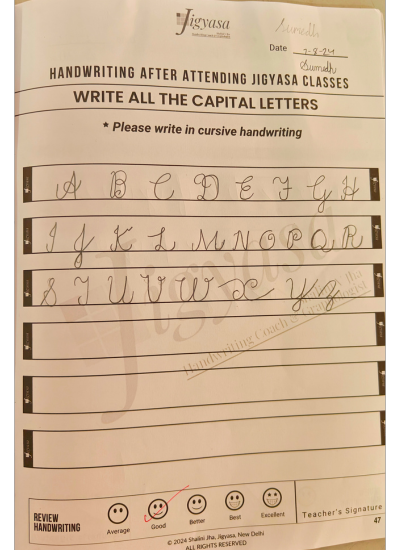 Jigyasa
Sumedh
Date 7-8-24
Sumedh
HANDWRITING AFTER ATTENDING JIGYASA CLASSES
WRITE ALL THE CAPITAL LETTERS
* Please write in cursive handwriting
A B C D E F G H
I J K L M N O P Q R
S T U V W X Y Z
Jigyasa
Handwriting Coach & Graphologist
REVIEW HANDWRITING
Average Good Better Best Excellent
Teacher's Signature
47
© 2024 Shalini Jha, Jigyasa, New Delhi
ALL RIGHTS RESERVED